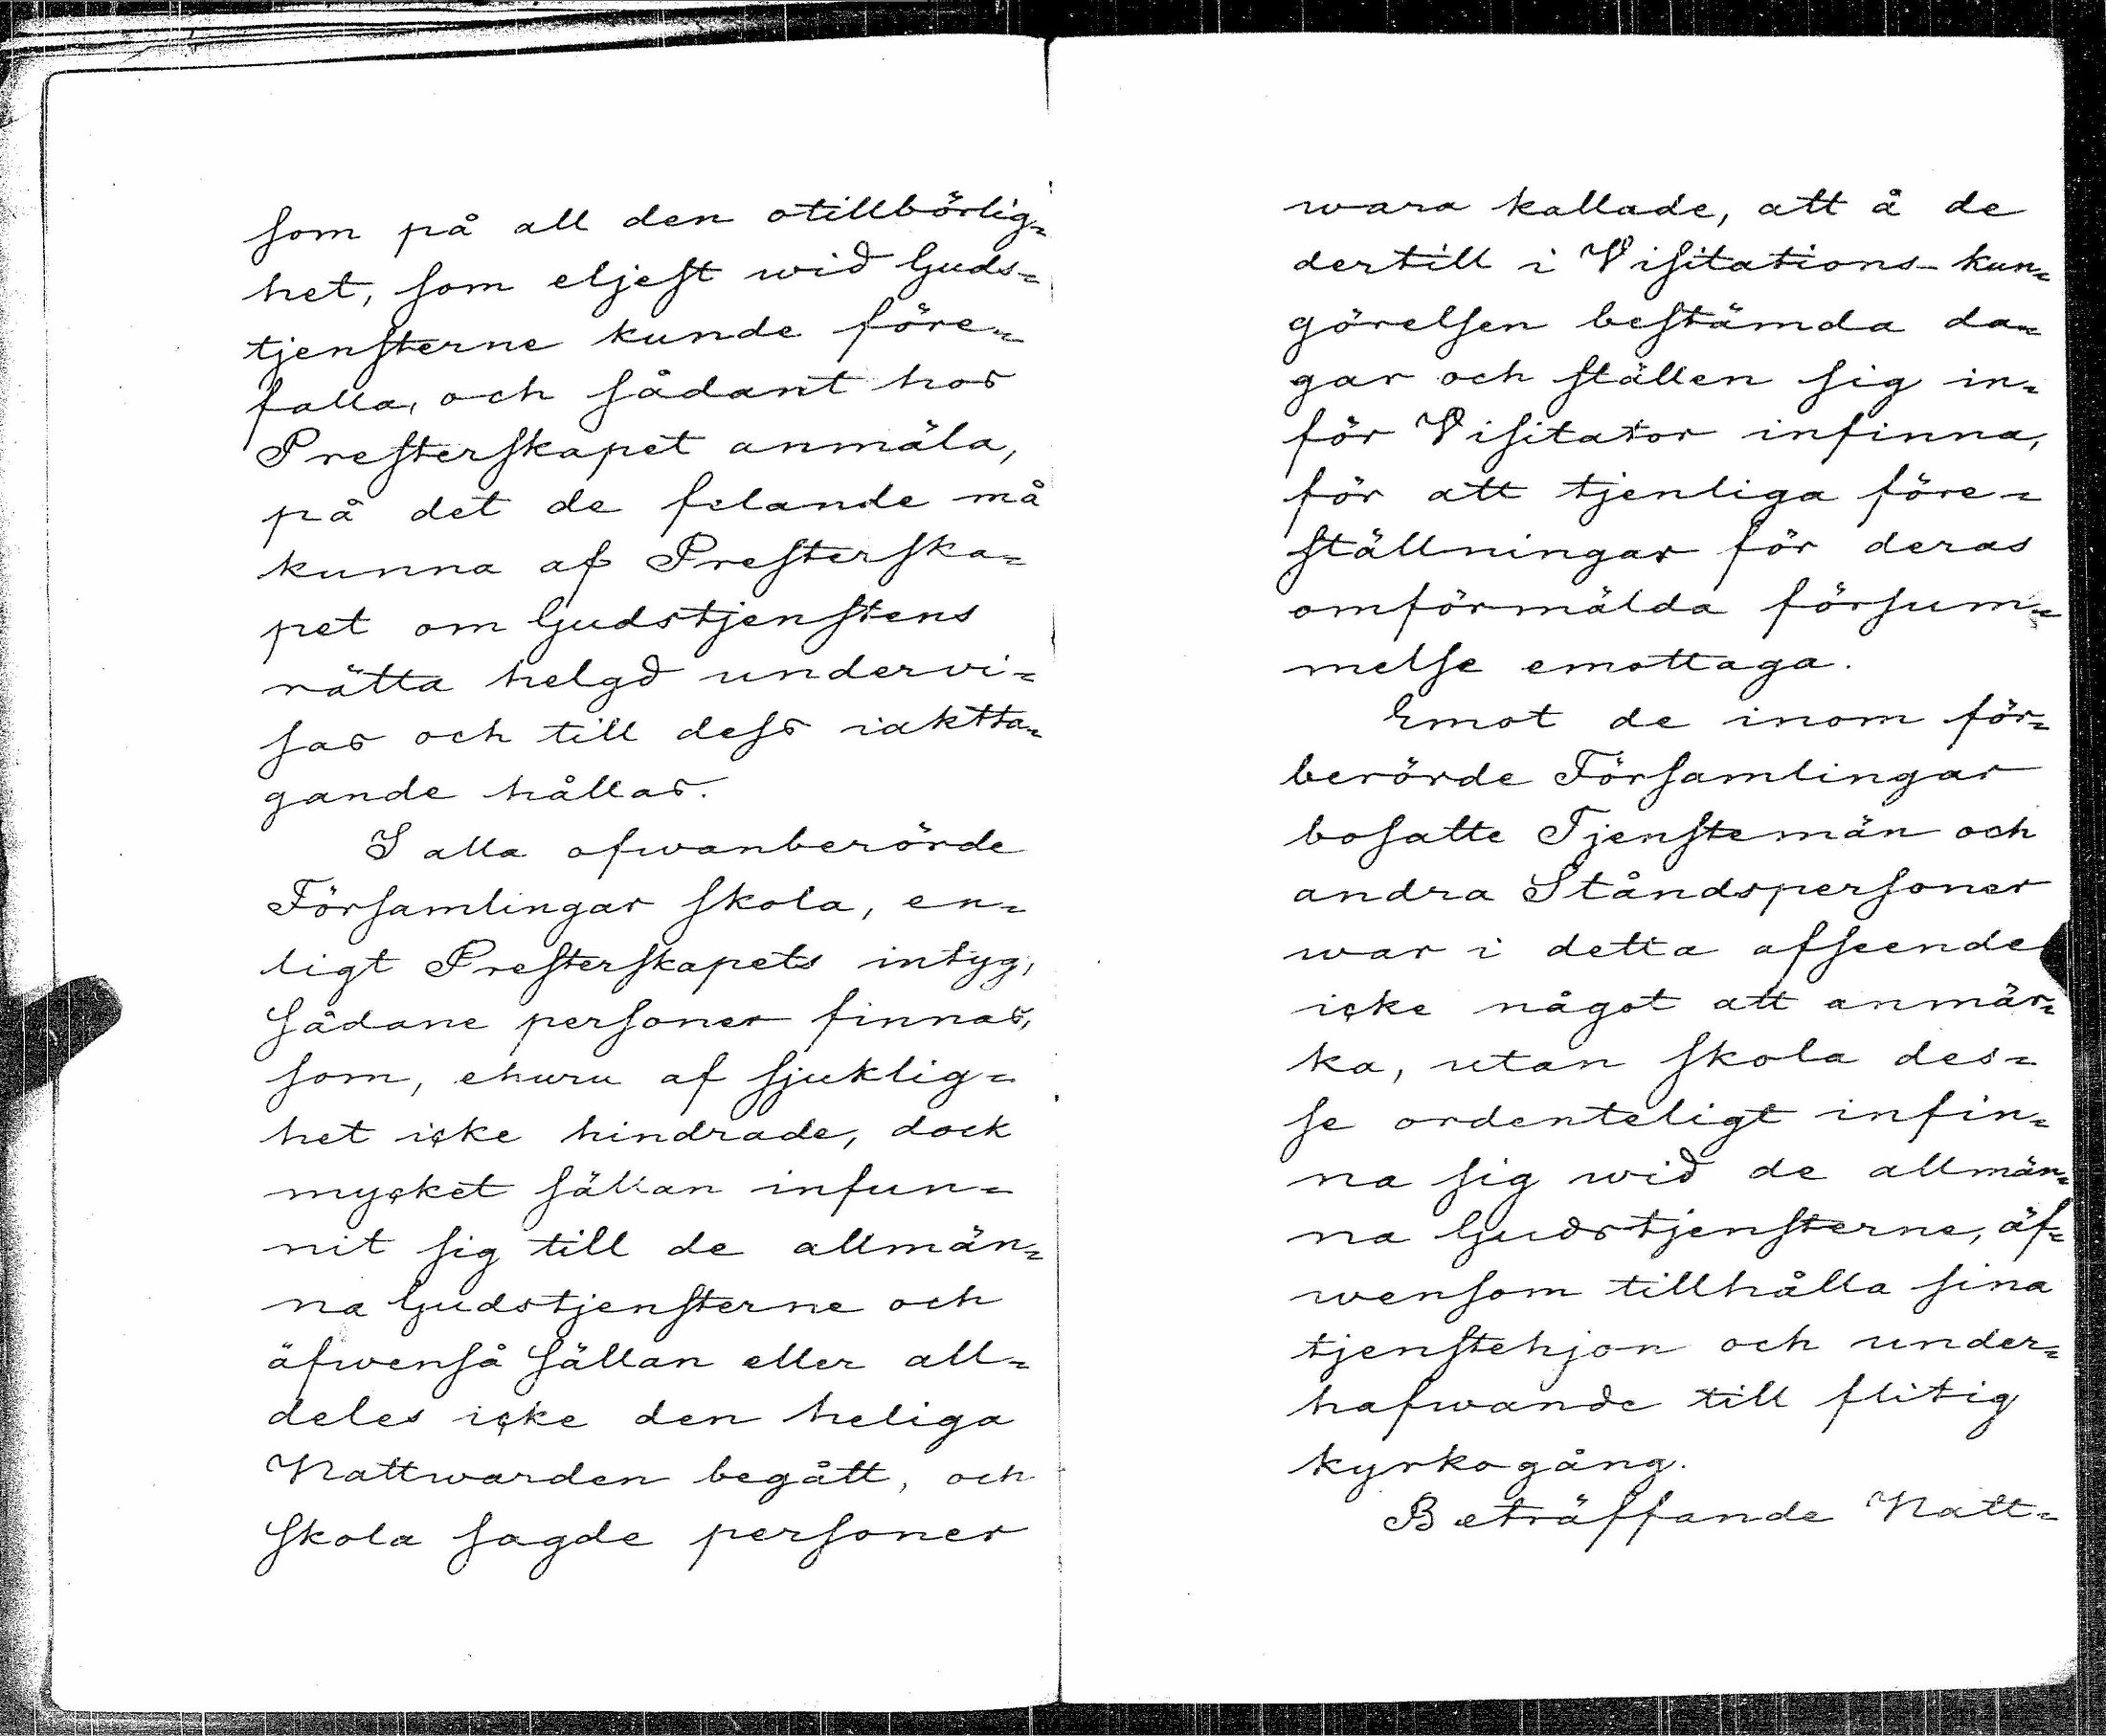 som på all den otillbörlig=
het, som eljest wid Guds=
tjensterne kunde före=
falla, och sådant hos
Presterskapet anmäla,
på det de felande må
kunna af Presterska=
pet om Gudstjenstens
rätta helgd undervi=
sas och till dess iaktta=
gande hållas.
I alla ofwanberörde
Församlingar skola, en=
ligt Presterskapets intyg,
sådane personer finnas,
som, ehuru af sjuklig=
het icke hindrade, dock
mycket sällan infun=
nit sig till de allmän=
na Gudstjensterne och
äfwenså sällan eller all=
deles icke den heliga
Nattwarden begått, och
skola sagde personer
wara kallade, att å de
dertill i Visitations-kun=
görelsen bestämda da=
gar och ställen sig in=
för Visitator infinna,
för att tjenliga före=
ställningar för deras
omförmälda försum=
melse emottaga.
Emot de inom för=
berörde Församlingar
bosatte Tjenstemän och
andra Ståndspersoner
war i detta afseende
icke något att anmär=
ka, utan skola des=
se ordenteligt infin=
na sig wid de allmän=
na Gudstjensterne, äf=
wensom tillhålla sina
tjenstehjon och under=
hafwande till flitig
kyrkogång.
Beträffande Natt=